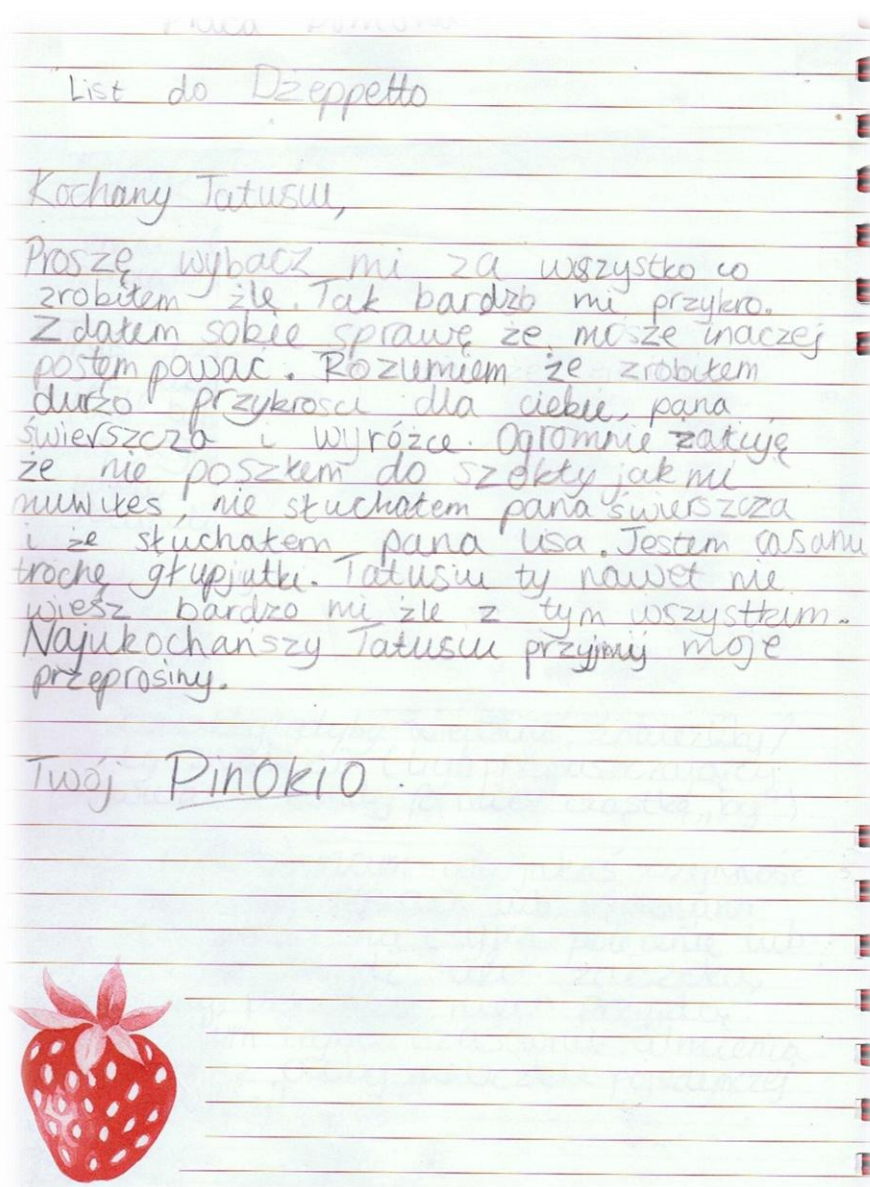 List do Dżeppetto
Kochany Tatusiu,
Proszę wybacz mi za wszystko co
zrobiłem źle. Tak bardzo mi przykro.
Zdałem sobie sprawę że mosze inaczej
postęmpować. Rozumiem że zrobiłem
durzo przykrosci dla ciebie, pana
świerszcza i wyróżce. Ogromnie załuję
że nie poszłem do szokły jak mi
muwiłes, nie słuchałem pana świerszcza
i że słuchałem pana lisa. Jestem casami
trochę głupjutki. Tatusiu ty nawet nie
wiesz bardzo mi źle z tym wszystkim.
Najukochańszy Tatusiu przyjmij moje
przeprosiny.
Twój Pinokio.